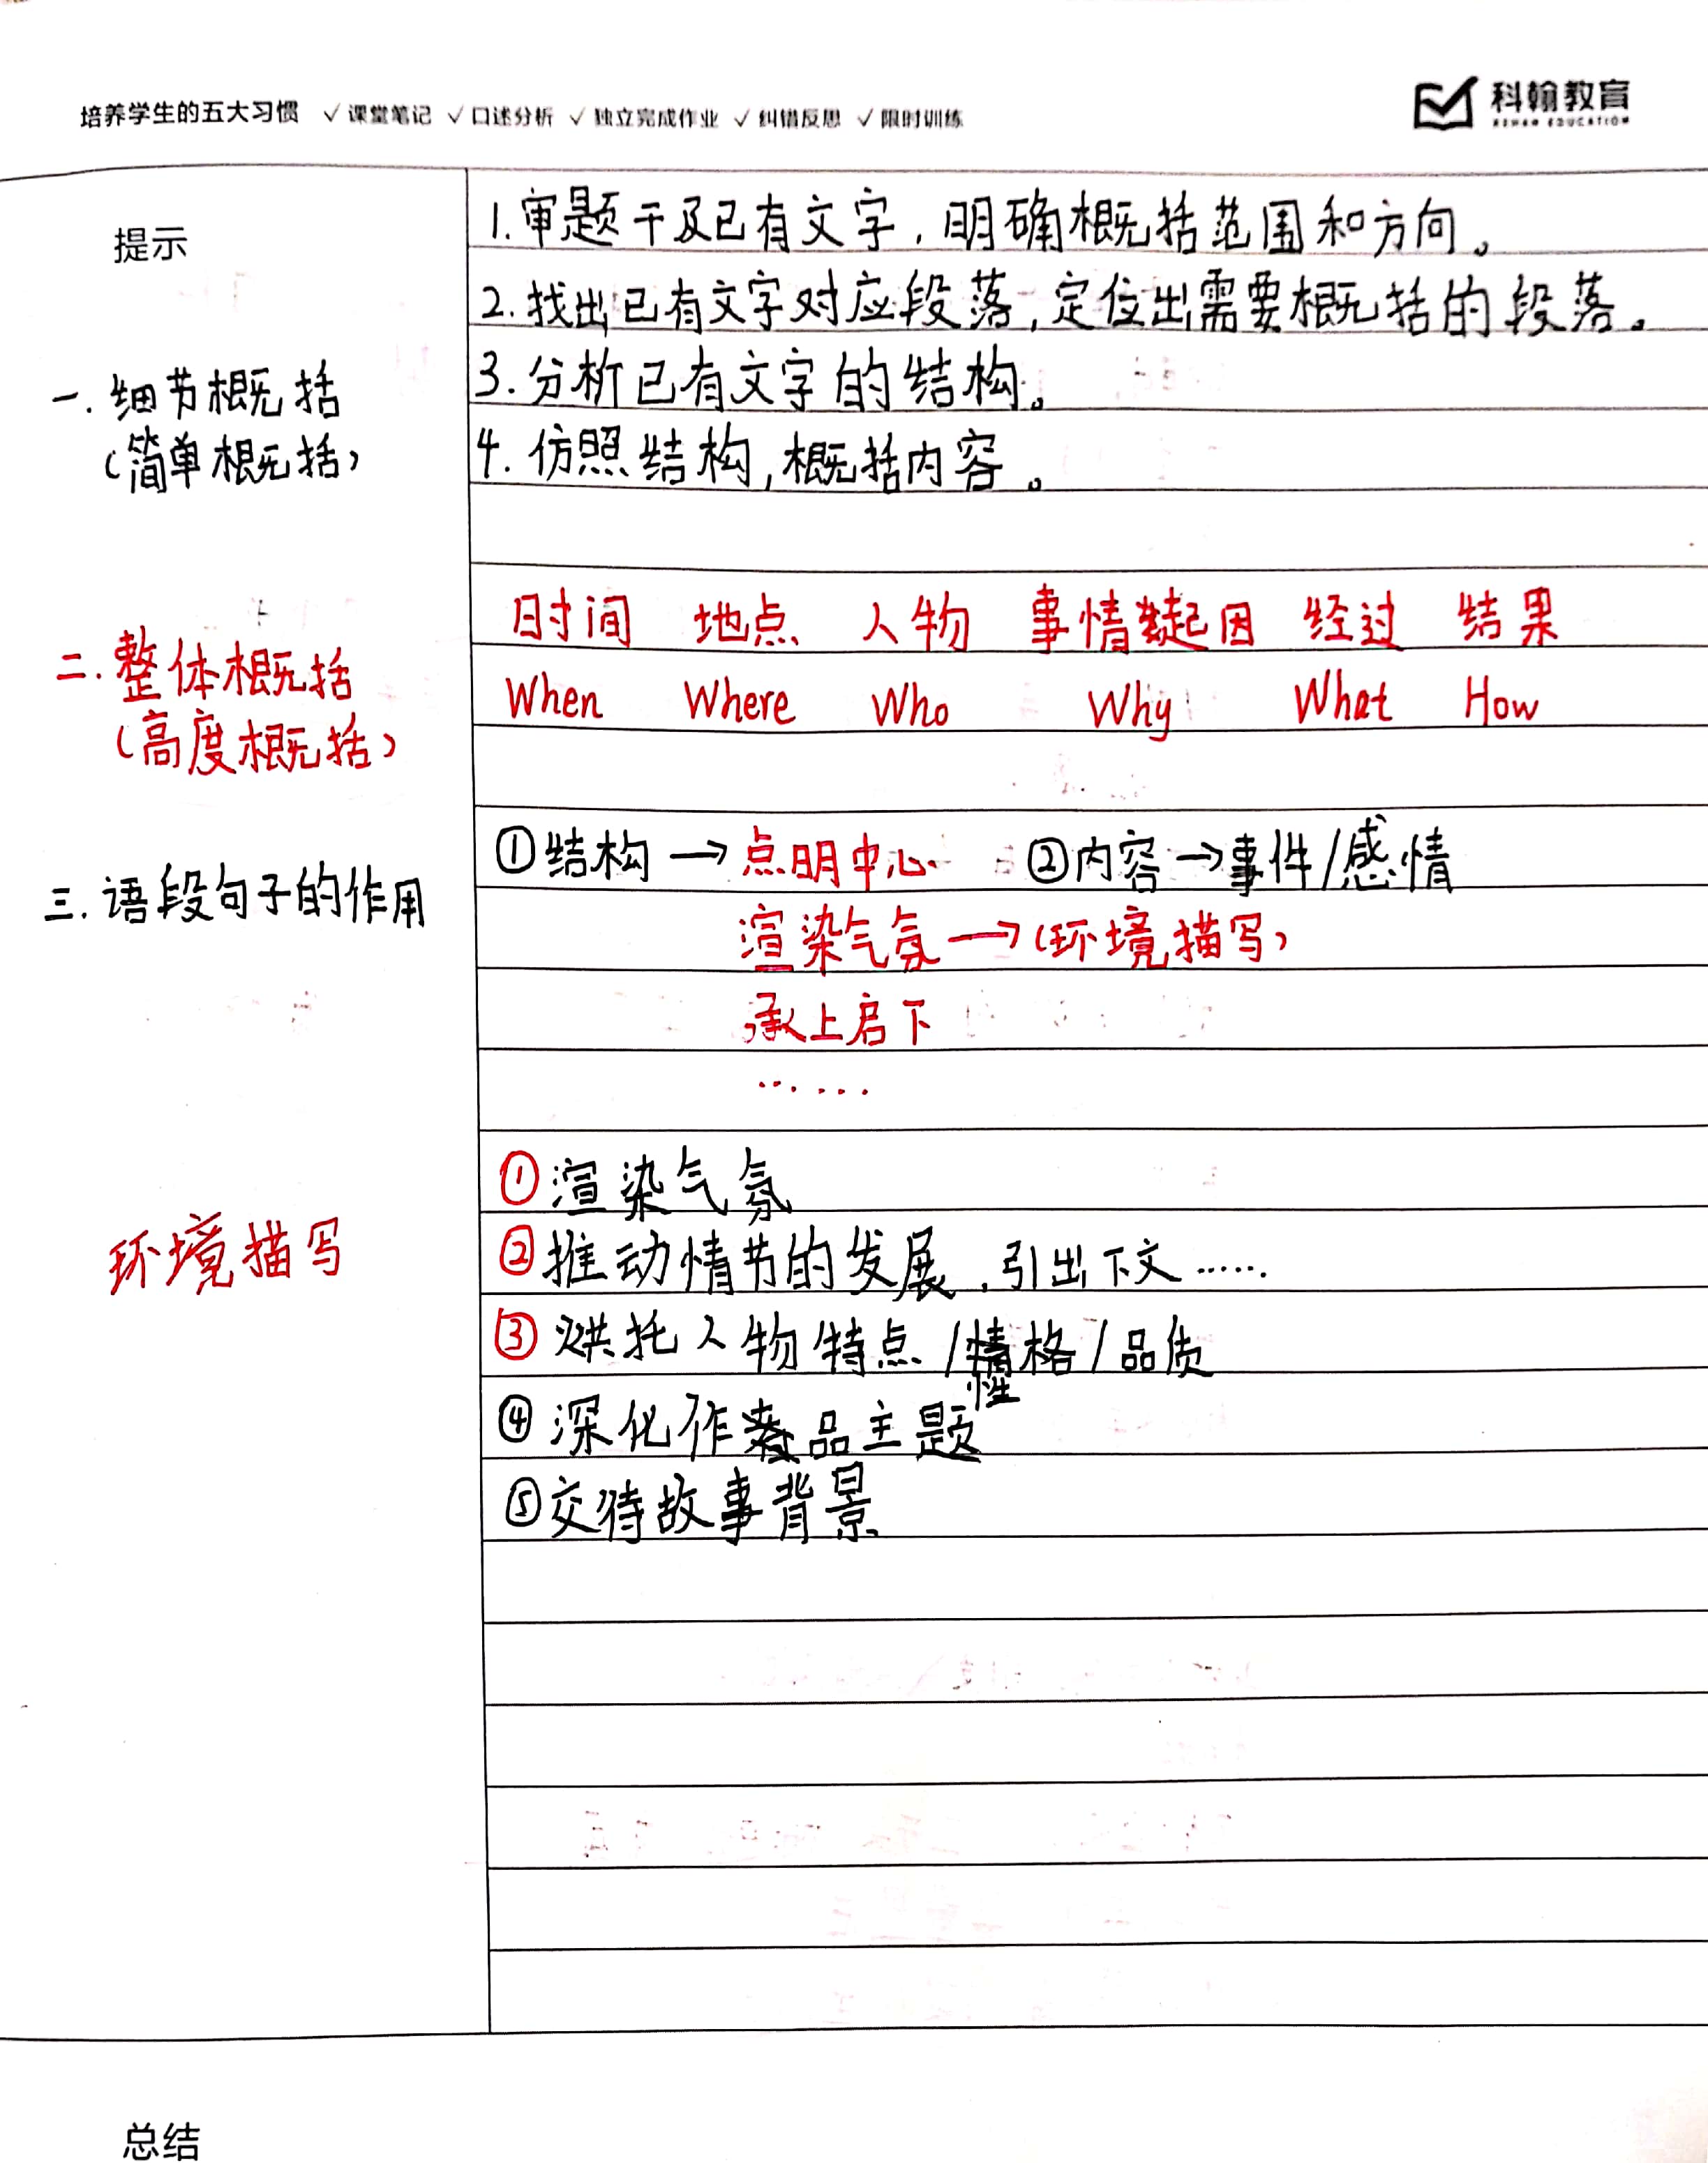 培养学生的五大习惯 ✓课堂笔记 ✓口述分析 ✓独立完成作业 ✓纠错反思 ✓限时训练
科翰教育
KEHAN EDUCATION
提示
1.审题干及已有文字，明确概括范围和方向。
2.找出已有文字对应段落，定位出需要概括的段落。
一.细节概括
(简单概括)
3.分析已有文字的结构。
4.仿照结构，概括内容。
二.整体概括
(高度概括)
时间 地点 人物 事情起因 经过 结果
When Where Who Why What How
三.语段句子的作用
①结构→点明中心 ②内容→事件/感情
渲染气氛→(环境描写)
承上启下
……
环境描写
①渲染气氛
②推动情节的发展，引出下文……
③烘托人物特点/性格/品质
④深化作品主题
⑤交待故事背景
总结